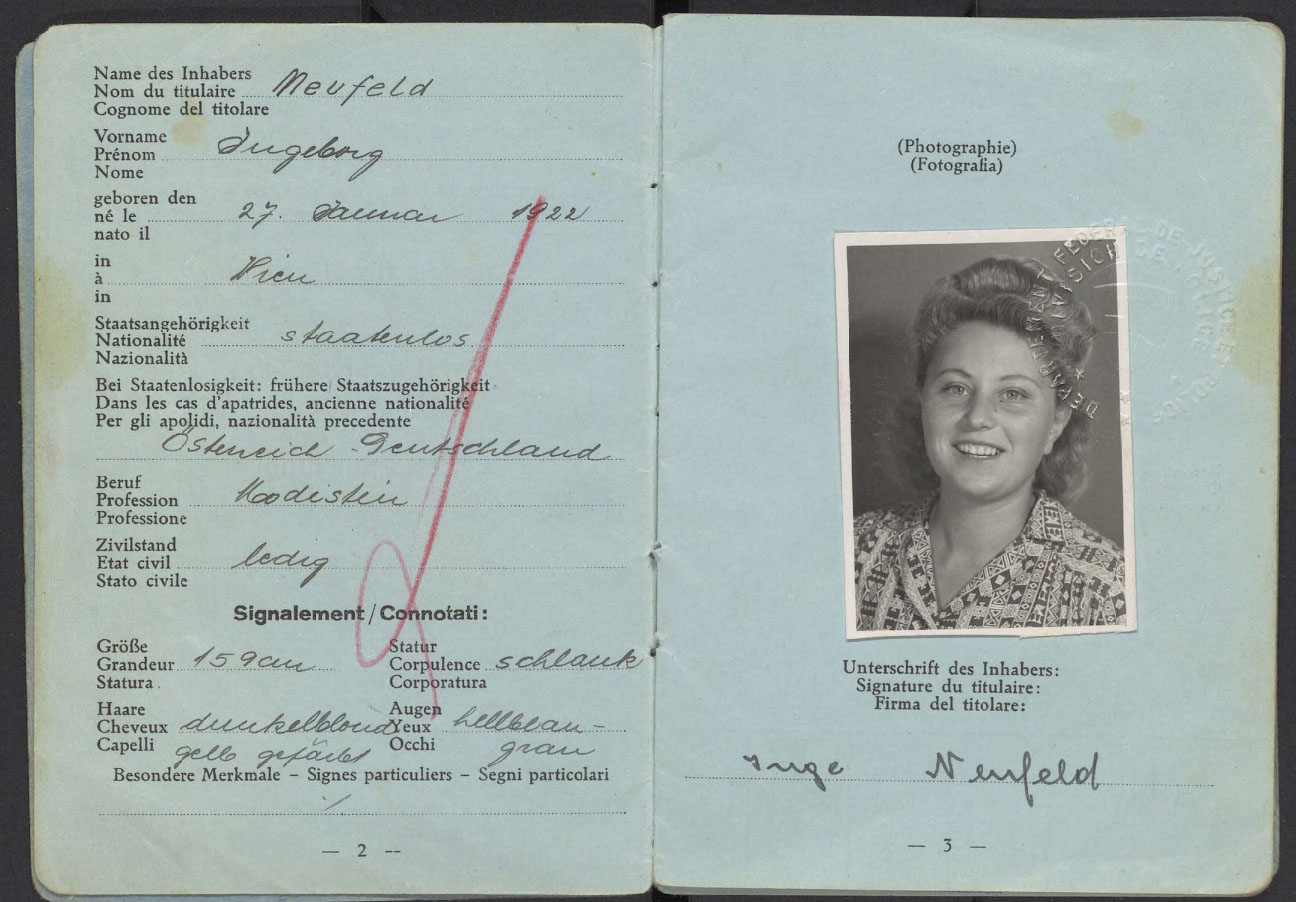 Name des Inhabers
Nom du titulaire Neufeld
Cognome del titolare
Vorname
Prénom Ingeborg
Nome
geboren den
né le 27. Januar 1922
nato il
in
à Wien
in
Staatsangehörigkeit
Nationalité staatenlos
Nazionalità
Bei Staatenlosigkeit: frühere Staatszugehörigkeit
Dans les cas d'apatrides, ancienne nationalité
Per gli apolidi, nazionalità precedente
Österreich - Deutschland
Beruf
Profession Modistin
Professione
Zivilstand
Etat civil ledig
Stato civile
Signalement / Connotati:
Größe Statur
Grandeur 159 cm Corpulence schlank
Statura Corporatura
Haare Augen
Cheveux dunkelblond Yeux hellblau-
Capelli gelb gefärbt Occhi grau
Besondere Merkmale – Signes particuliers – Segni particolari
— 2 —
(Photographie)
(Fotografia)
DEPARTEMENT FEDERAL DE JUSTICE ET POLICE
DIVISION DE POLICE
Unterschrift des Inhabers:
Signature du titulaire:
Firma del titolare:
Inge Neufeld
— 3 —